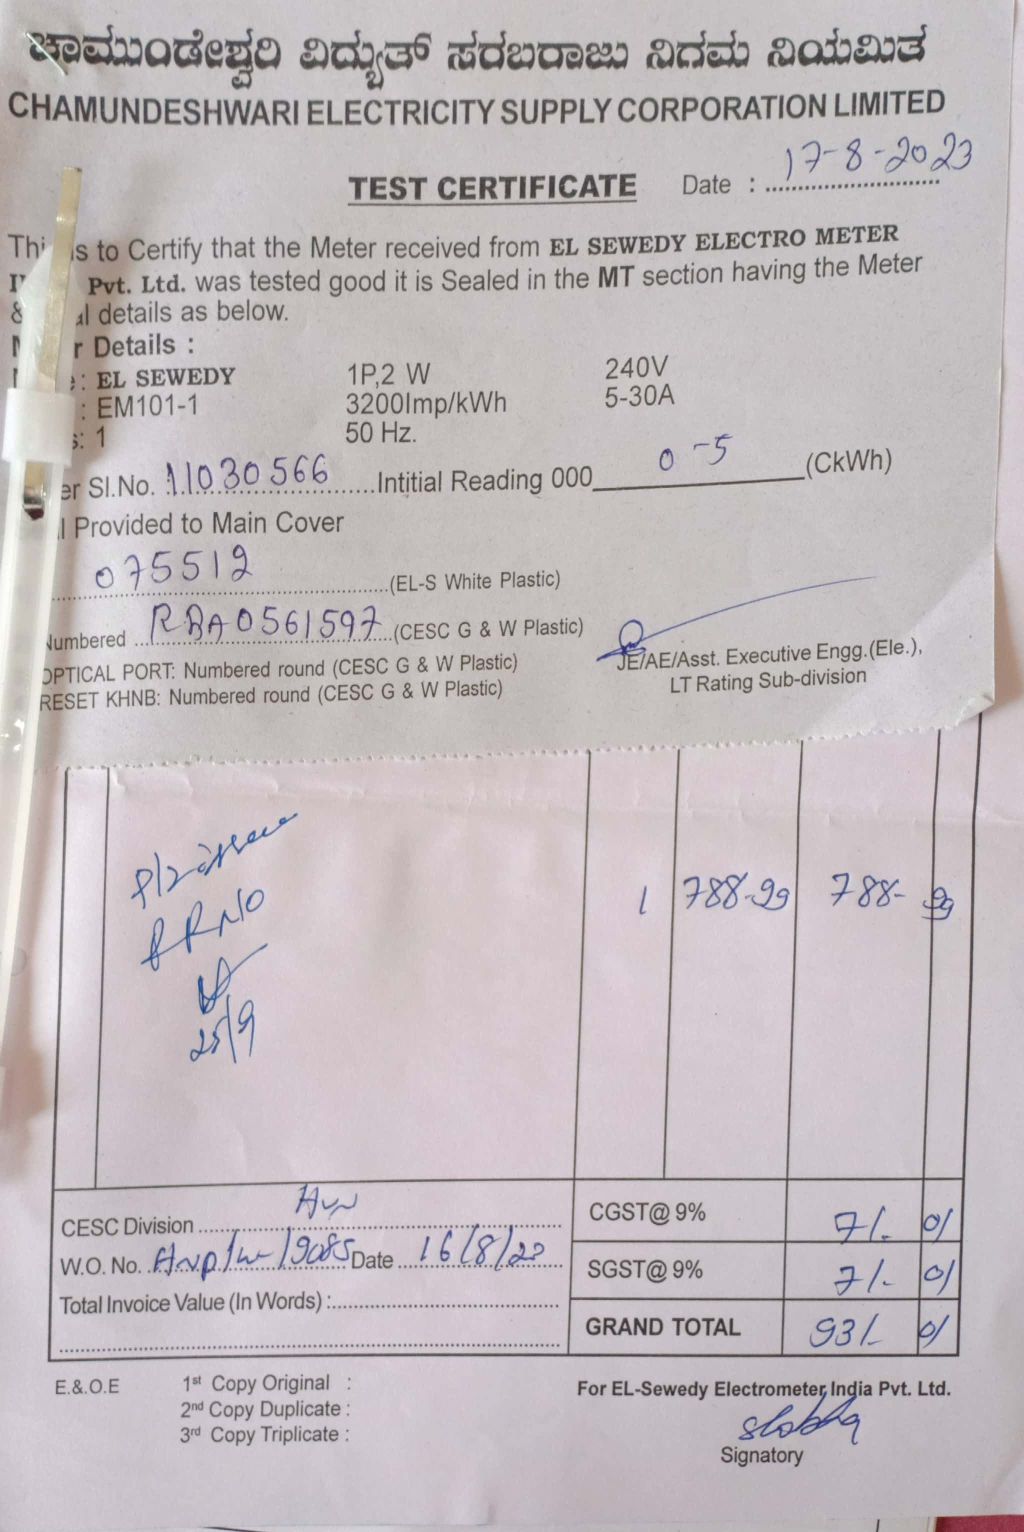 ಚಾಮುಂಡೇಶ್ವರಿ ವಿದ್ಯುತ್ ಸರಬರಾಜು ನಿಗಮ ನಿಯಮಿತ
CHAMUNDESHWARI ELECTRICITY SUPPLY CORPORATION LIMITED
TEST CERTIFICATE Date : 17-8-2023
is to Certify that the Meter received from EL SEWEDY ELECTRO METER
Pvt. Ltd. was tested good it is Sealed in the MT section having the Meter
& details as below.
Details :
: EL SEWEDY 1P,2 W 240V
: EM101-1 3200Imp/kWh 5-30A
: 1 50 Hz.
Sl.No. 11030566 Intitial Reading 000 0-5 (CkWh)
Provided to Main Cover
075512 (EL-S White Plastic)
Numbered RBA0561597 (CESC G & W Plastic)
OPTICAL PORT: Numbered round (CESC G & W Plastic)
RESET KHNB: Numbered round (CESC G & W Plastic)
JE/AE/Asst. Executive Engg.(Ele.),
LT Rating Sub-division
1 788-99 788-99
25/9
CESC Division
CGST@ 9% 71/- 0/
W.O. No. Date 16/8/23
SGST@ 9% 71/- 0/
Total Invoice Value (In Words) :
GRAND TOTAL 931/- 0/
E.&.O.E 1st Copy Original :
2nd Copy Duplicate :
3rd Copy Triplicate :
For EL-Sewedy Electrometer India Pvt. Ltd.
Signatory